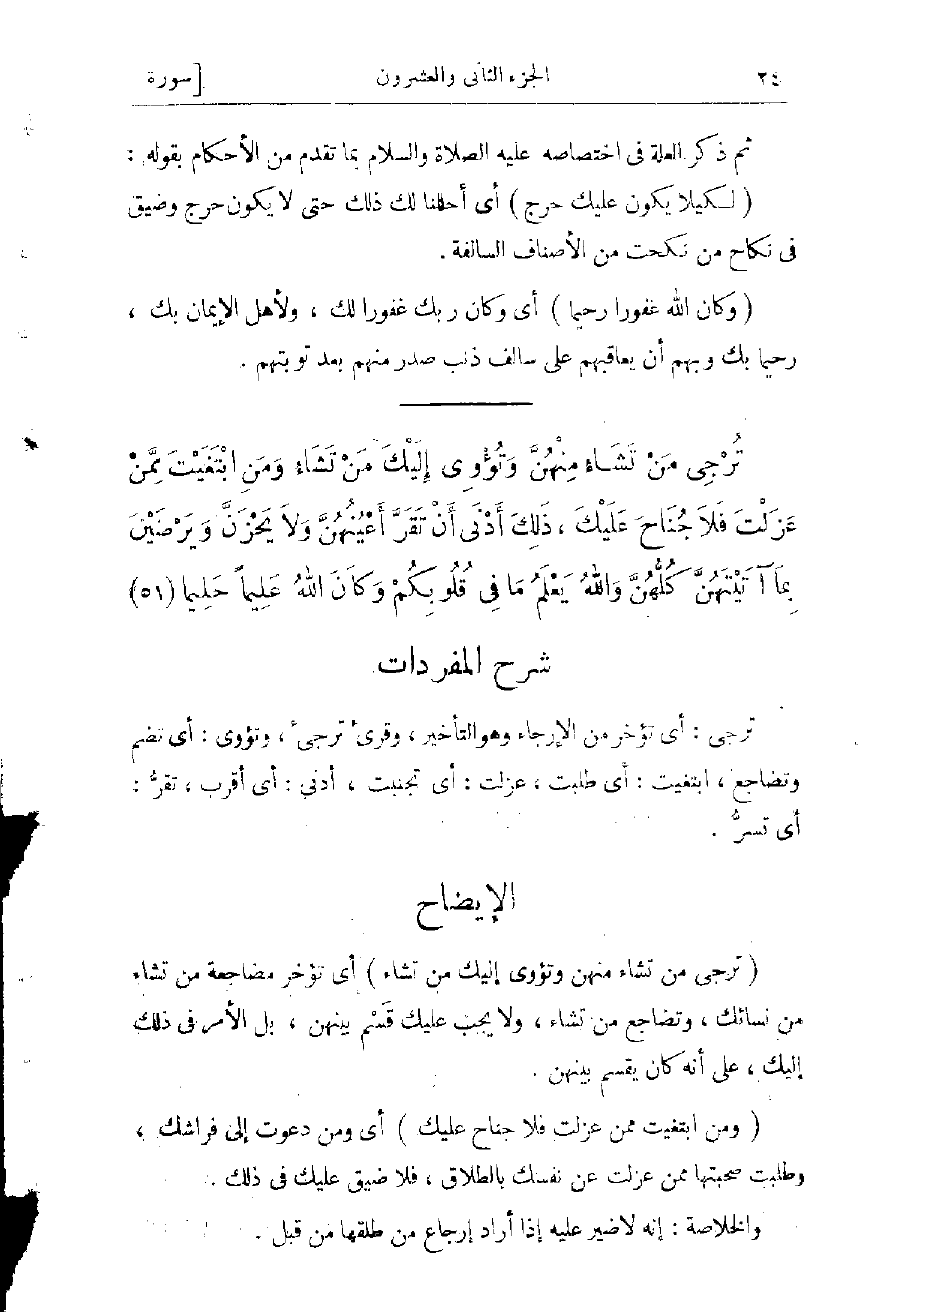 ٢٤ الجزء الثانى والعشرون [سورة
ثم ذكر العلة فى اختصاصه عليه الصلاة والسلام بما تقدم من الأحكام بقوله :
( لكيلا يكون عليك حرج ) أى أحللنا لك ذلك حتى لا يكون حرج وضيق
فى نكاح من نكحت من الأصناف السالفة .
( وكان الله غفورا رحيما ) أى وكان ربك غفورا لك ، ولأهل الإيمان بك ،
رحيما بك وبهم أن يعاقبهم على سالف ذنب صدر منهم بعد توبتهم .
تُرْجِى مَنْ تَشَاءُ مِنْهُنَّ وَتُؤْوِى إِلَيْكَ مَنْ تَشَاءُ وَمَنِ ابْتَغَيْتَ مِمَّنْ
عَزَلْتَ فَلاَ جُنَاحَ عَلَيْكَ ، ذَلِكَ أَدْنَى أَنْ تَقَرَّ أَعْيُنُهُنَّ وَلاَ يَحْزَنَّ وَيَرْضَيْنَ
بِمَا آتَيْتَهُنَّ كُلُّهُنَّ وَاللهُ يَعْلَمُ مَا فِى قُلُوبِكُمْ وَكَانَ اللهُ عَلِيماً حَلِيما (٥١)
شرح المفردات
ترجى : أى تؤخر من الإرجاء وهو التأخير ، وقرئ ترجئ ، وتؤوى : أى تضم
وتضاجع ، ابتغيت : أى طلبت ، عزلت : أى تجنبت ، أدنى : أى أقرب ، تقرُّ :
أى تسرُّ .
الإيضاح
( ترجى من تشاء منهن وتؤوى إليك من تشاء ) أى تؤخر مضاجعة من تشاء
من نسائك ، وتضاجع من تشاء ، ولا يجب عليك قَسْم بينهن ، بل الأمر فى ذلك
إليك ، على أنه كان يقسم بينهن .
( ومن ابتغيت ممن عزلت فلا جناح عليك ) أى ومن دعوت إلى فراشك ،
وطلبت صحبتها ممن عزلت عن نفسك بالطلاق ، فلا ضيق عليك فى ذلك .
والخلاصة : إنه لا ضير عليه إذا أراد إرجاع من طلقها من قبل .